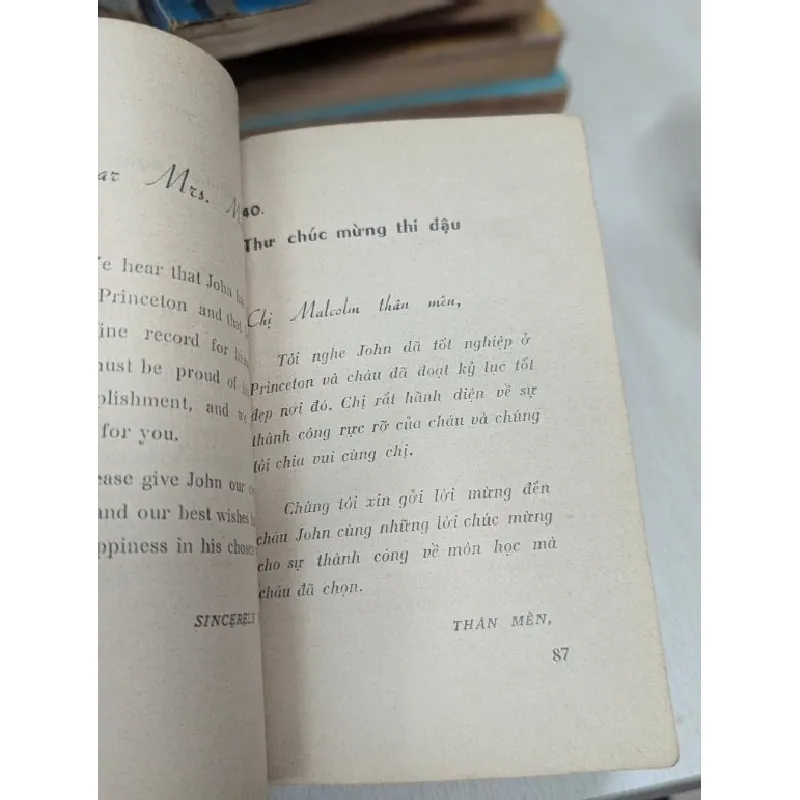 Mrs.
hear that John
Princeton and
record for
be proud of
and
for you.
give John our
and our best wishes
in his
40.
Thư chúc mừng thi đậu
Chị Malcolm thân mên,
Tôi nghe John đã tốt nghiệp ở
Princeton và cháu đã đoạt kỷ lục tốt
đẹp nơi đó. Chị rất hãnh diện về sự
thành công rực rỡ của cháu và chúng
tôi chia vui cùng chị.
Chúng tôi xin gởi lời mừng đến
cháu John cùng những lời chúc mừng
cho sự thành công về môn học mà
cháu đã chọn.
THÂN MẾN,
87